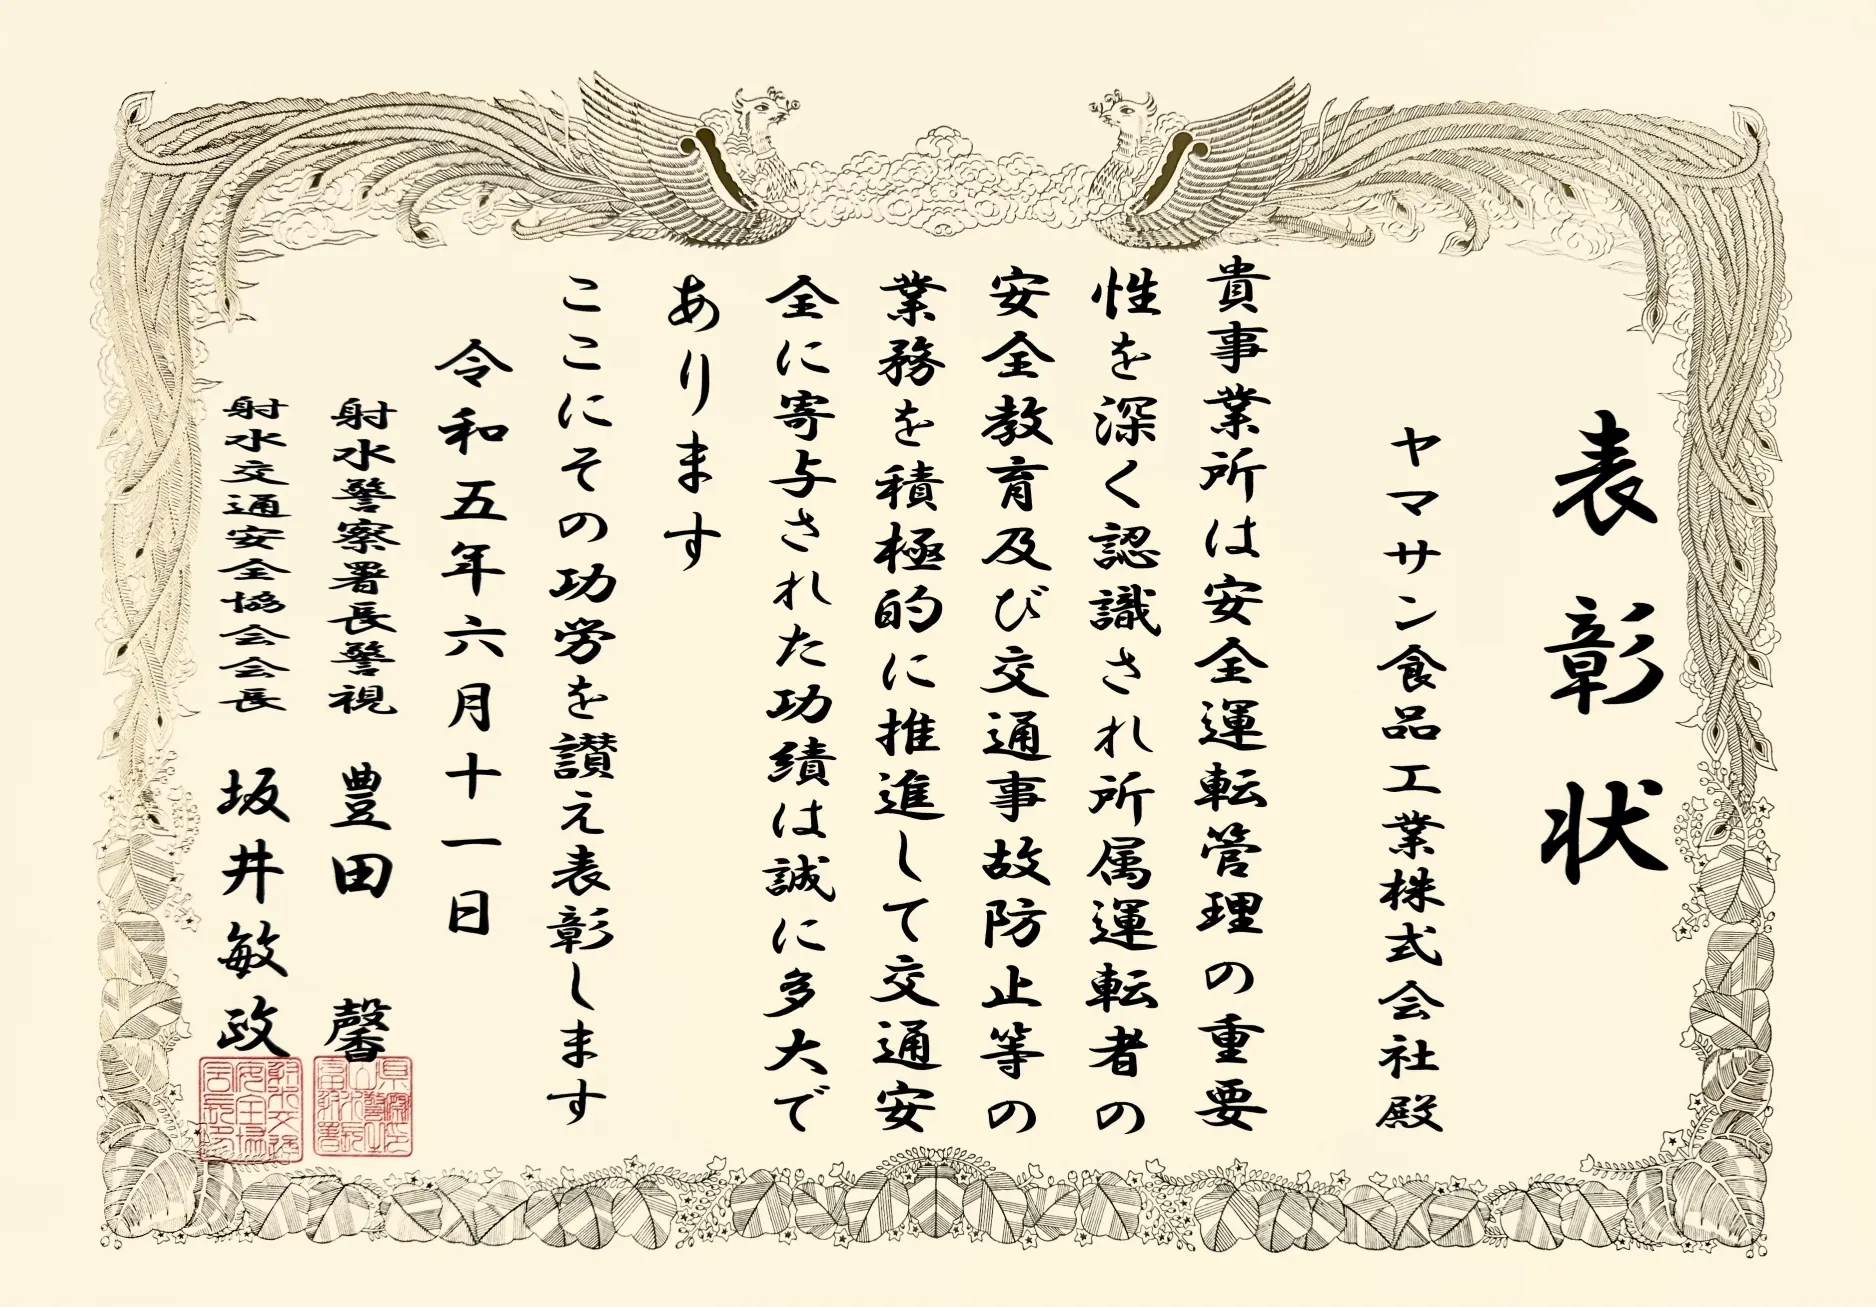 表彰状
ヤマサン食品工業株式会社殿
貴事業所は安全運転管理の重要
性を深く認識され所属運転者の
安全教育及び交通事故防止等の
業務を積極的に推進して交通安
全に寄与された功績は誠に多大で
あります
ここにその功労を讃え表彰します
令和五年六月十一日
射水警察署長警視 豊田 馨
射水交通安全協会会長 坂井敏政